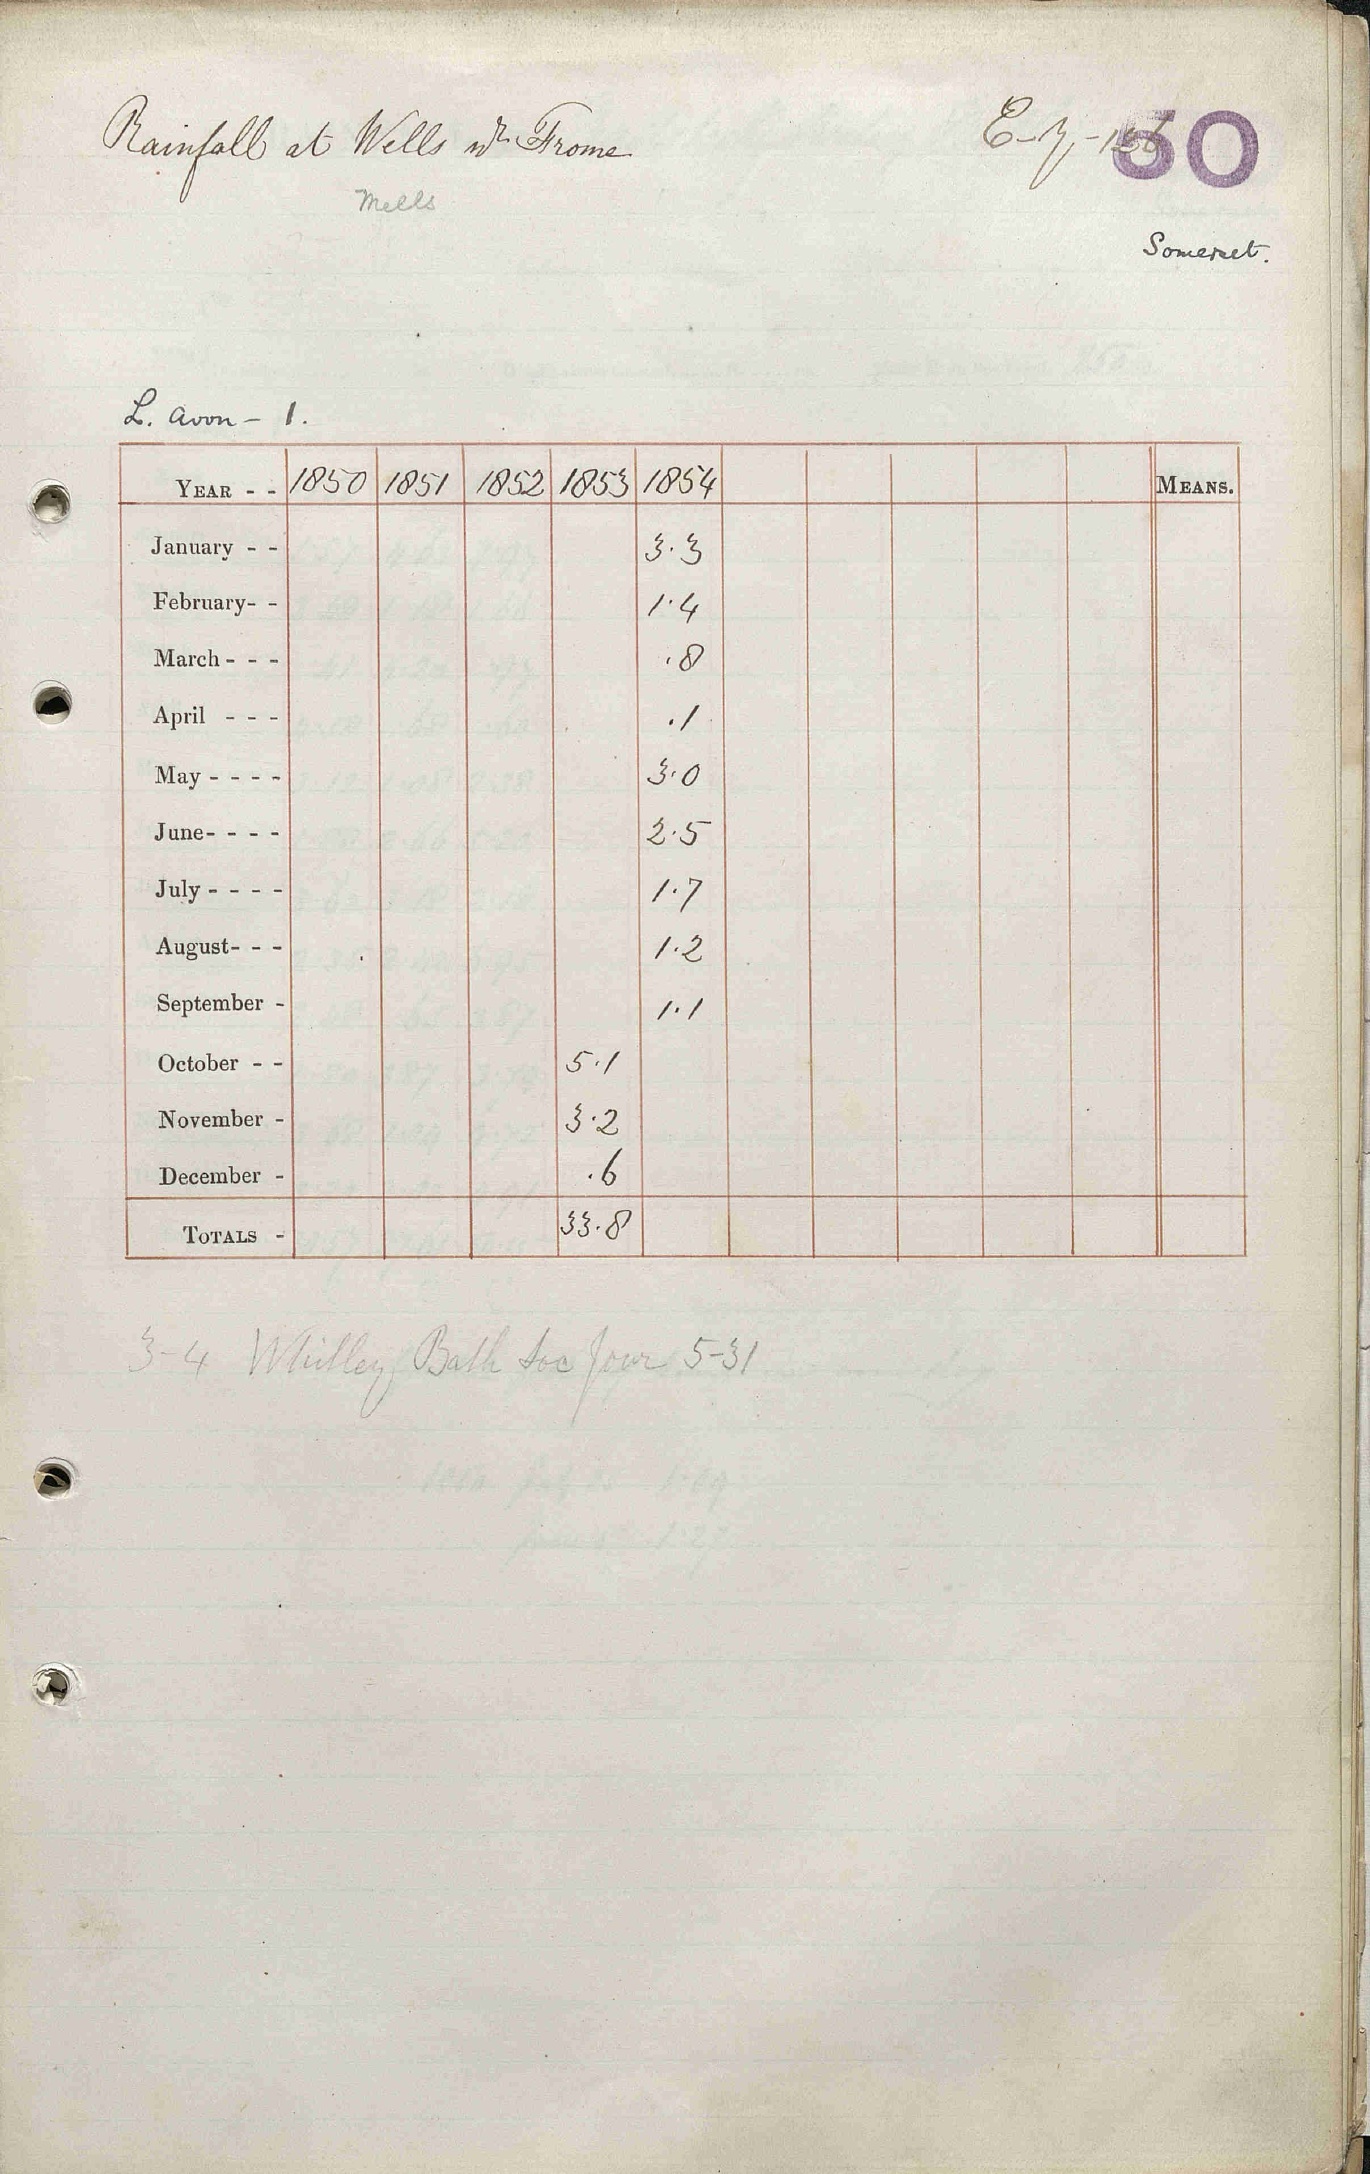 Rainfall at Wells nr Frome
Mells
50
Somerset.
L. Avon - 1.
YEAR - - 1850 1851 1852 1853 1854 MEANS.
January - - 3.3
February - - 1.4
March - - - .8
April - - - .1
May - - - - 3.0
June - - - - 2.5
July - - - - 1.7
August - - - 1.2
September - 1.1
October - - 5.1
November - 3.2
December - .6
TOTALS - 33.8
3-4 Whitley Bath Soc Jour 5-31